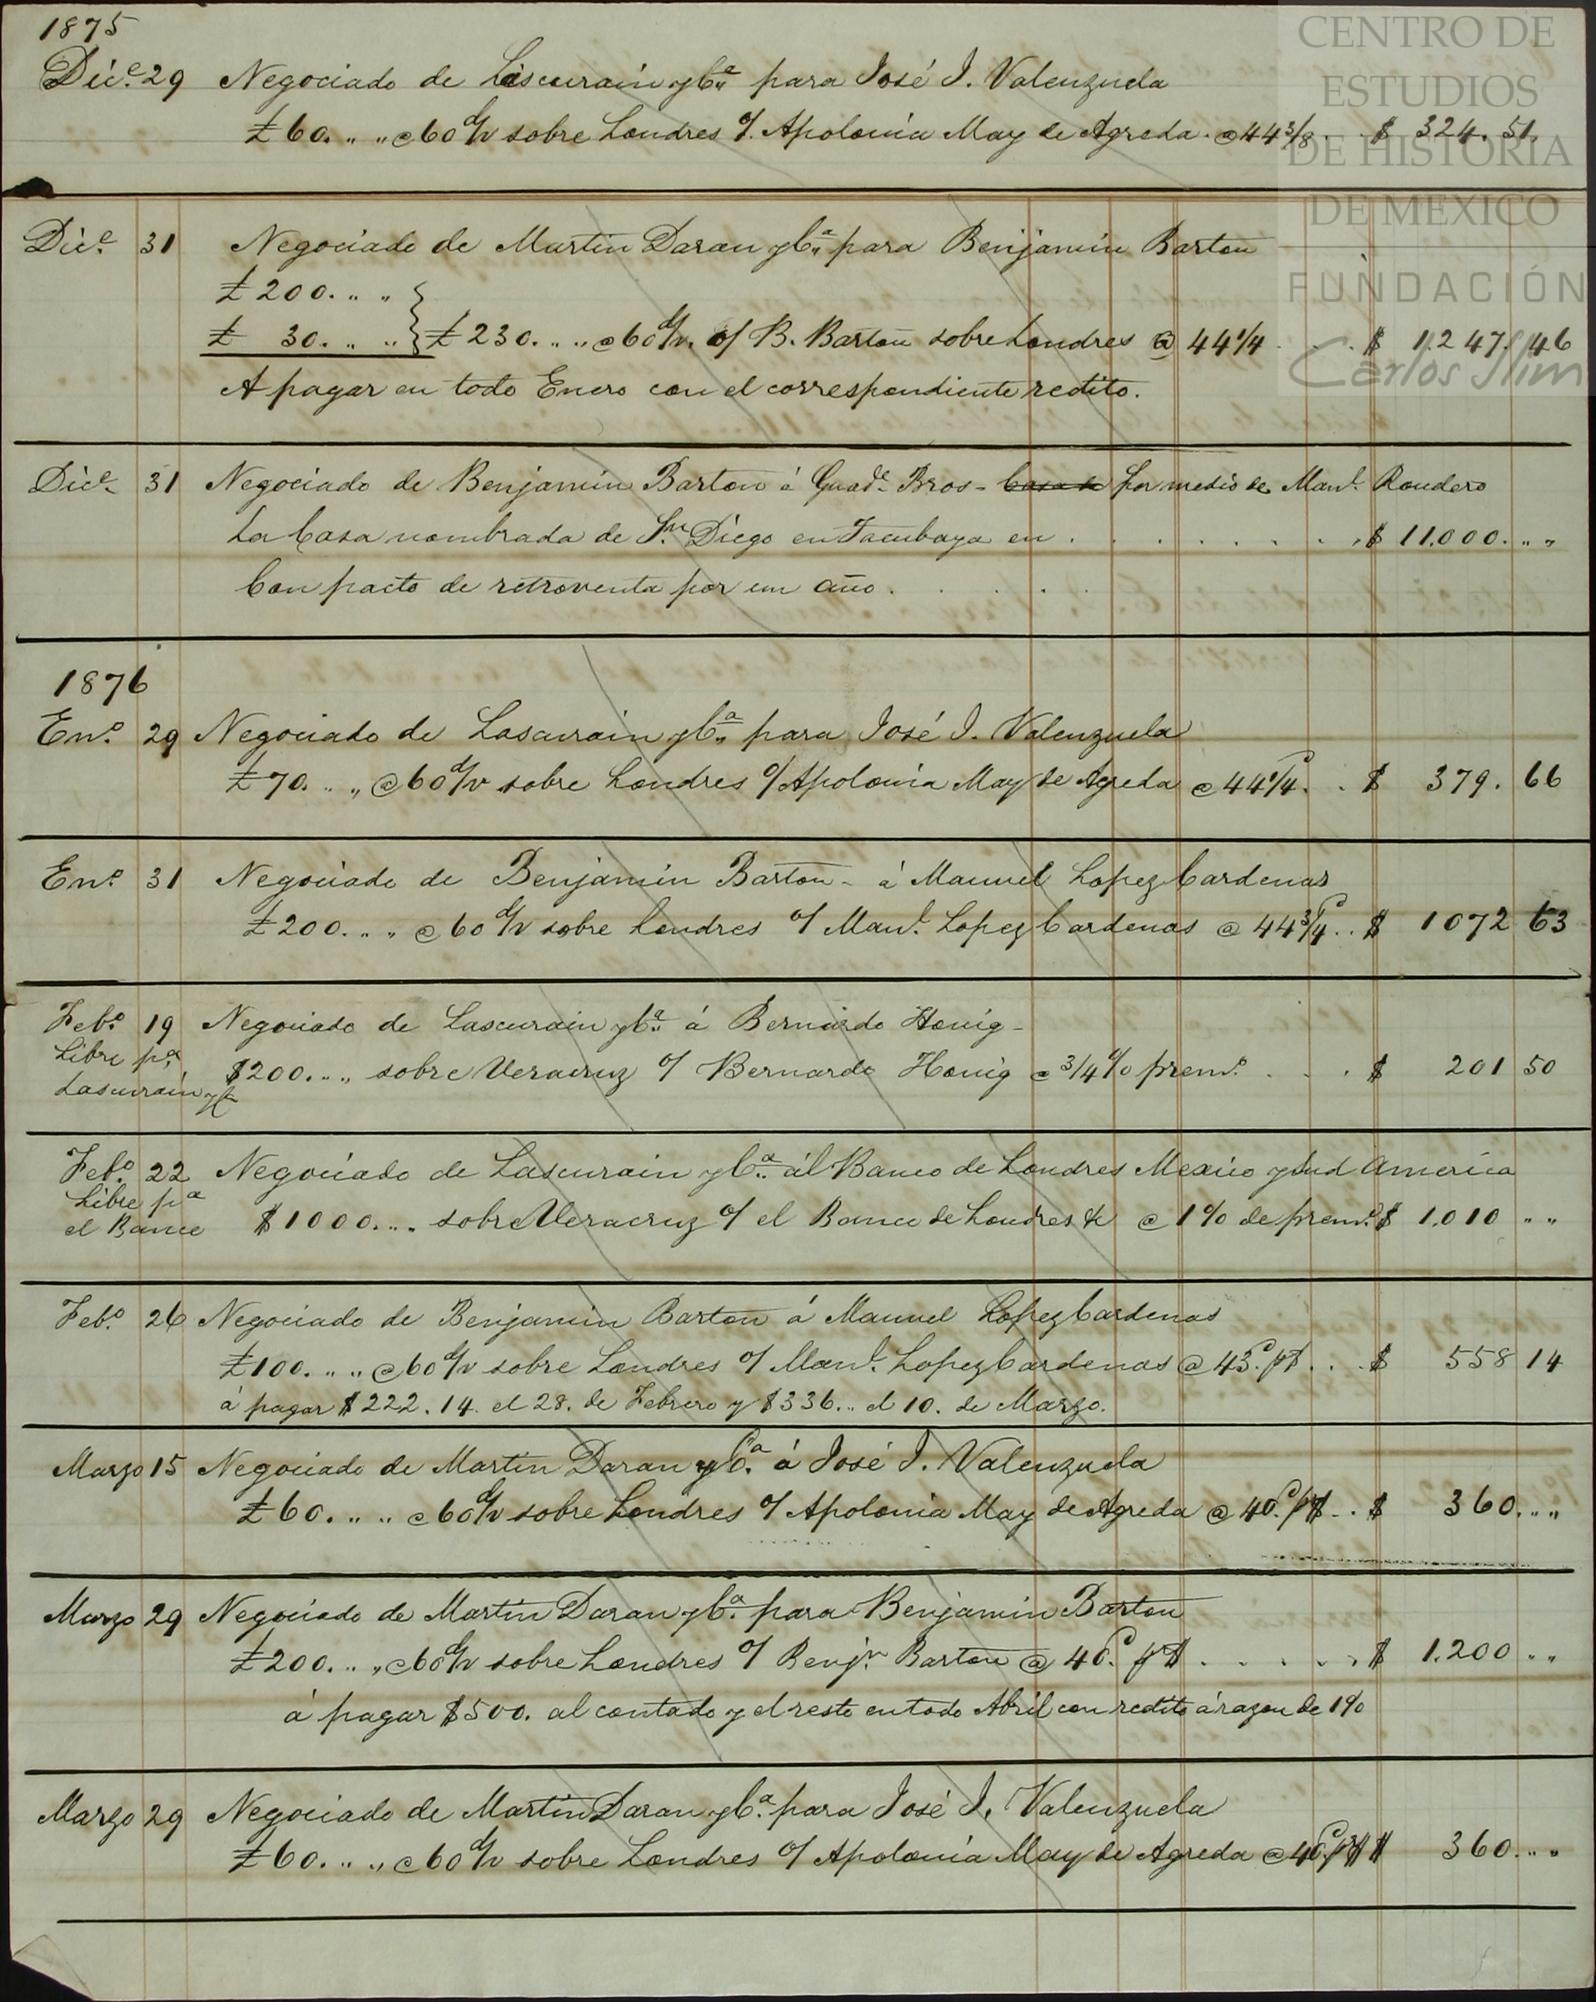 1875
CENTRO DE
ESTUDIOS
DE HISTORIA
DE MEXICO
FUNDACIÓN
Carlos Slim
Dic.e 29 Negociado de Lascurain y Ca. para José I. Valenzuela
£60. " " @ 60 d/v sobre Londres o/. Apolonia May de Agreda. @ 44 3/8 . . $ 324. 51.
Dic.e 31 Negociado de Martin Daran y Ca. para Benjamin Barton
£ 200. " "
£ 30. " " } £ 230. " " @ 60 d/v. o/ B. Barton sobre Londres @ 44 1/4 . . . $ 1.247. 46
A pagar en todo Enero con el correspondiente redito.
Dic.e 31 Negociado de Benjamin Barton á Guad.e Bros - Casa de por medio de Man.l Rondero
La Casa nombrada de Sn. Diego en Tacubaya en . . . . . . . . $ 11.000. " "
Con pacto de retroventa por un año . . . . .
1876
En.o 29 Negociado de Lascurain y Ca. para José I. Valenzuela
£70. " " @ 60 d/v sobre Londres o/ Apolonia May de Agreda @ 44 1/4 . . $ 379. 66
En.o 31 Negociado de Benjamin Barton - á Manuel Lopez Cardenas
£200. " " @ 60 d/v sobre Londres o/ Man.l Lopez Cardenas @ 44 3/4 . . $ 1072 63
Feb.o 19 Negociado de Lascurain y Ca. á Bernardo Honig -
Libre pa.
Lascurain y Ca
$200. " " sobre Veracruz o/ Bernardo Honig @ 3/4 % prem.o . . . . $ 201 50
Feb.o 22 Negociado de Lascurain y Ca. ál Banco de Londres Mexico y Sud America
Libre pa
el Banco
$1000. " " sobre Veracruz o/ el Banco de Londres & @ 1% de prem.o $ 1.010 " "
Feb.o 26 Negociado de Benjamin Barton á Manuel Lopez Cardenas
£100. " " @ 60 d/v sobre Londres o/ Man.l Lopez Cardenas @ 43.d p$ . . . $ 558 14
á pagar $222. 14. el 28. de Febrero y $336. " el 10. de Marzo.
Marzo 15 Negociado de Martin Daran y Ca. á José I. Valenzuela
£60. " " @ 60 d/v sobre Londres o/ Apolonia May de Agreda @ 40.d p$ . . $ 360. " "
Marzo 29 Negociado de Martin Daran y Ca. para Benjamin Barton
£200. " " @ 60 d/v sobre Londres o/ Benj.n Barton @ 40.d p$ . . . . . . $ 1.200 " "
á pagar $500. al contado y el resto en todo Abril con redito á razon de 1%
Marzo 29 Negociado de Martin Daran y Ca. para José I. Valenzuela
£60. " " @ 60 d/v sobre Londres o/ Apolonia May de Agreda @ 40.d p$ $ 360. " "